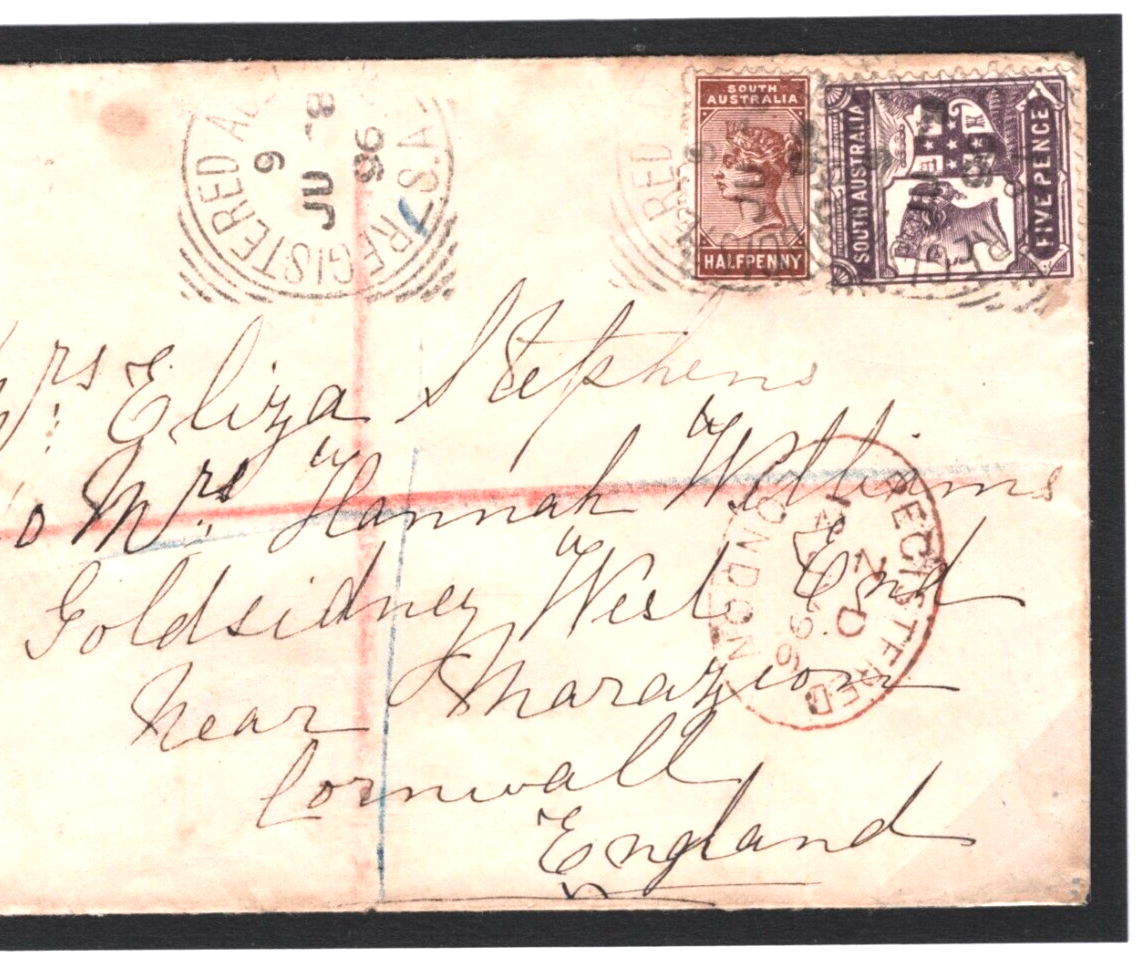 REGISTERED
6
JU 8
96
REGISTERED
S.A.
SOUTH
AUSTRALIA
HALFPENNY
SOUTH AUSTRALIA
FIVE PENCE
Mrs. Eliza Stephens
o Mrs. Hannah Williams
Goldsidney West End
Near Marazion
Cornwall
England
REGISTERED
LONDON
D
96